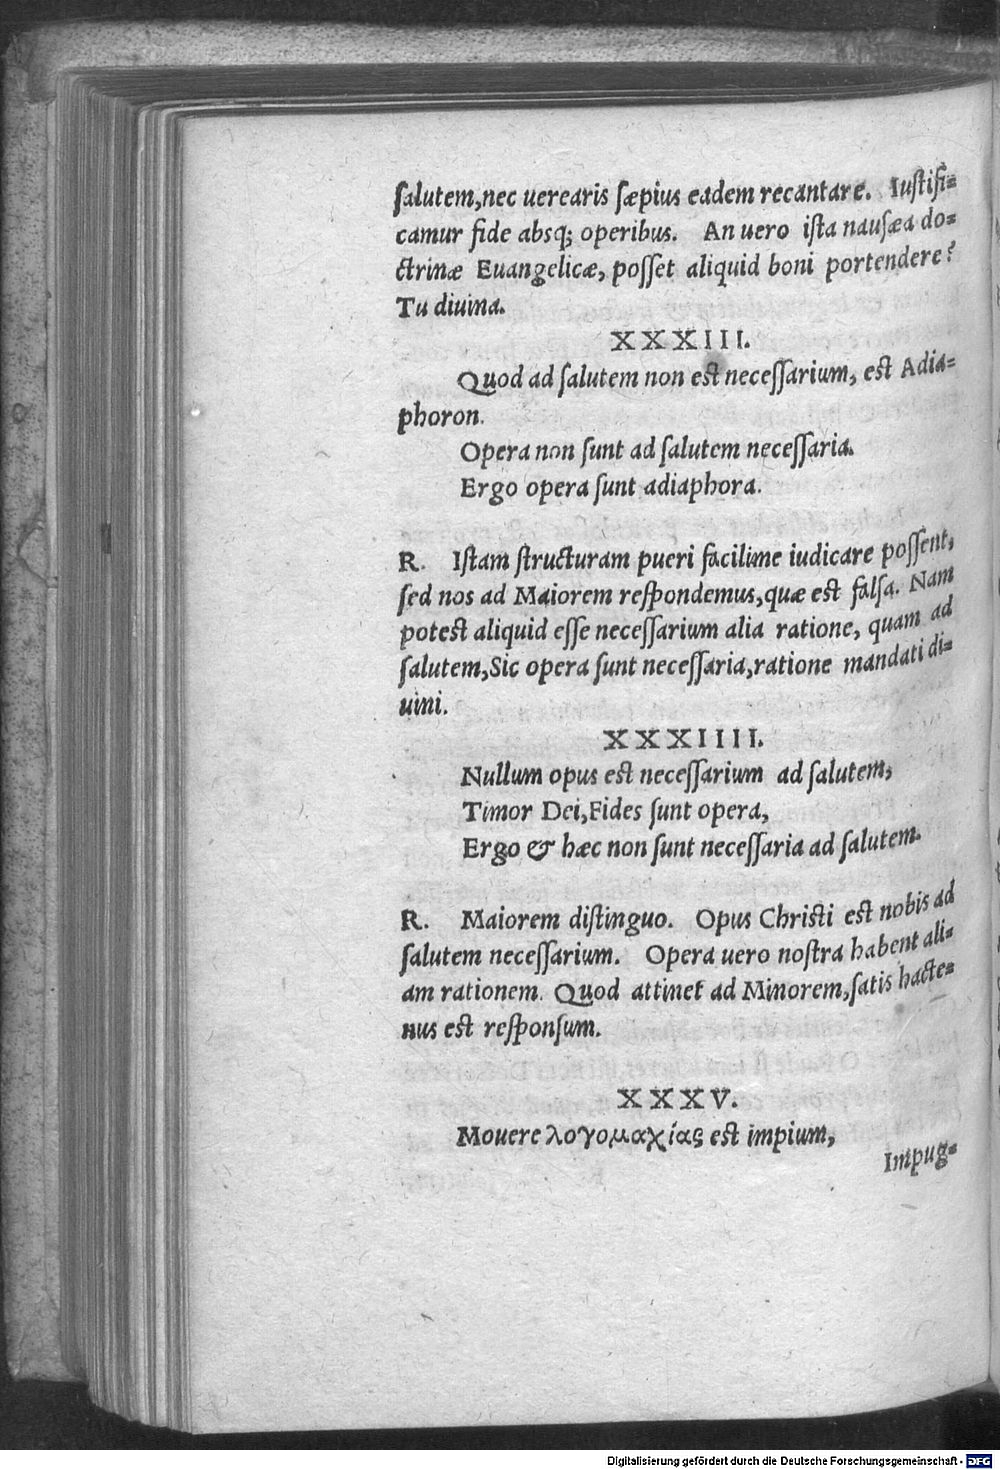 salutem,nec uerearis sæpius eadem recantare. Iustifi-
camur fide absq; operibus. An uero ista nausæa do-
ctrinæ Euangelicæ, posset aliquid boni portendere?
Tu diuina.
XXXIII.
Quod ad salutem non est necessarium, est Adia-
phoron.
Opera non sunt ad salutem necessaria.
Ergo opera sunt adiaphora.
R. Istam structuram pueri facilime iudicare possent,
sed nos ad Maiorem respondemus,quæ est falsa. Nam
potest aliquid esse necessarium alia ratione, quam ad
salutem,Sic opera sunt necessaria,ratione mandati di-
uini.
XXXIIII.
Nullum opus est necessarium ad salutem,
Timor Dei,Fides sunt opera,
Ergo & hæc non sunt necessaria ad salutem.
R. Maiorem distinguo. Opus Christi est nobis ad
salutem necessarium. Opera uero nostra habent ali-
am rationem. Quod attinet ad Minorem,satis hacte-
nus est responsum.
XXXV.
Mouere λογομαχίας est impium,
Impug-
Digitalisierung gefördert durch die Deutsche Forschungsgemeinschaft - DFG